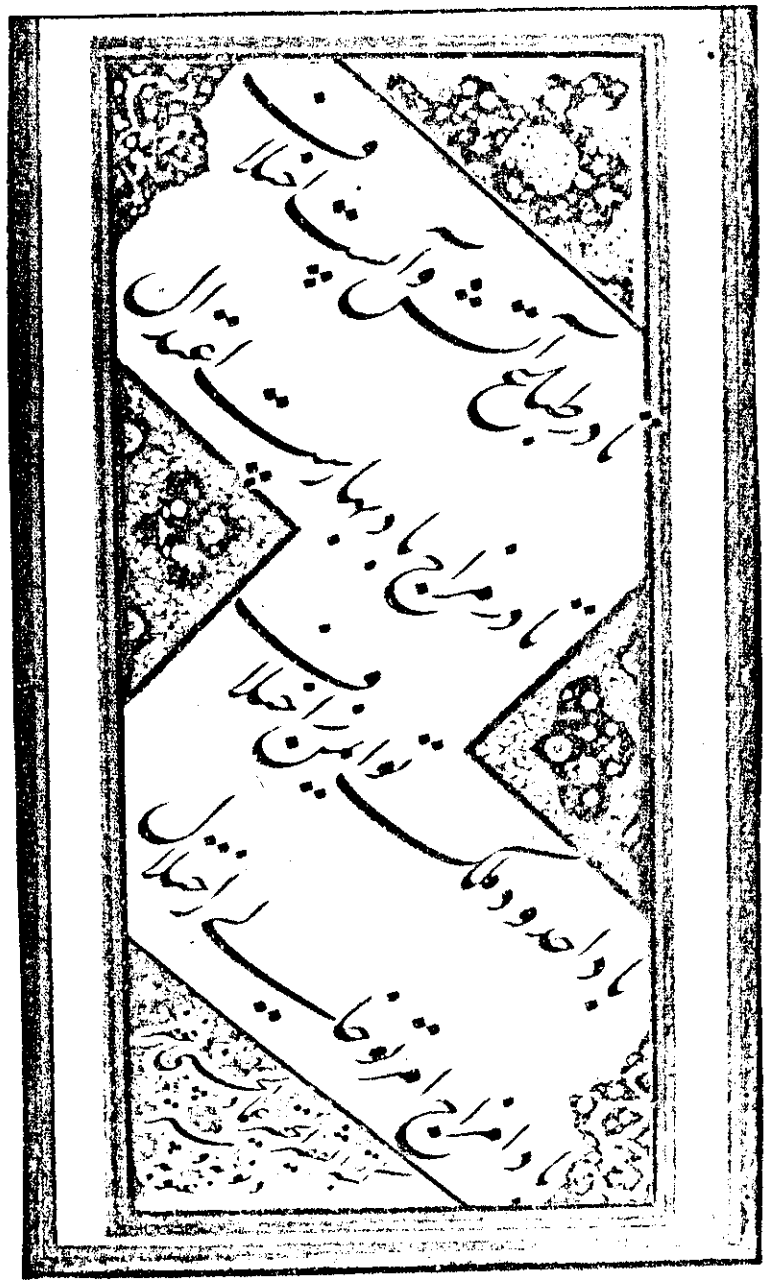 تا در طبایع آتش و آبست اختلاف
تا در مزاج باد بهارست اعتدال
بادا حدود ملک تو ایمن ز اختلاف
بادا مزاج امر تو خالی ز اختلال